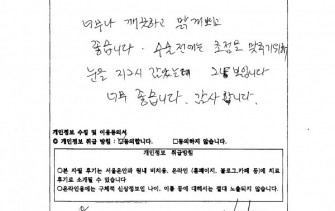 너무나 깨끗하고 맑게보고
좋습니다. 수술전에는 초점을 맞추기위해
눈을 지그시 감았는데 그냥 보입니다
너무 좋습니다. 감사합니다.
개인정보 수집 및 이용동의서
개인정보 취급 방침 : 동의합니다. □동의하지 않습니다.
개인정보 취급방침
○본 자필 후기는 서울온안과 원내 비치용, 온라인 (홈페이지, 블로그,카페 등)에 치료
후기로 소개될 수 있습니다
○온라인용에는 구체적 신상정보인 나이, 이름 등에 대해서는 절대 노출되지 않습니다.